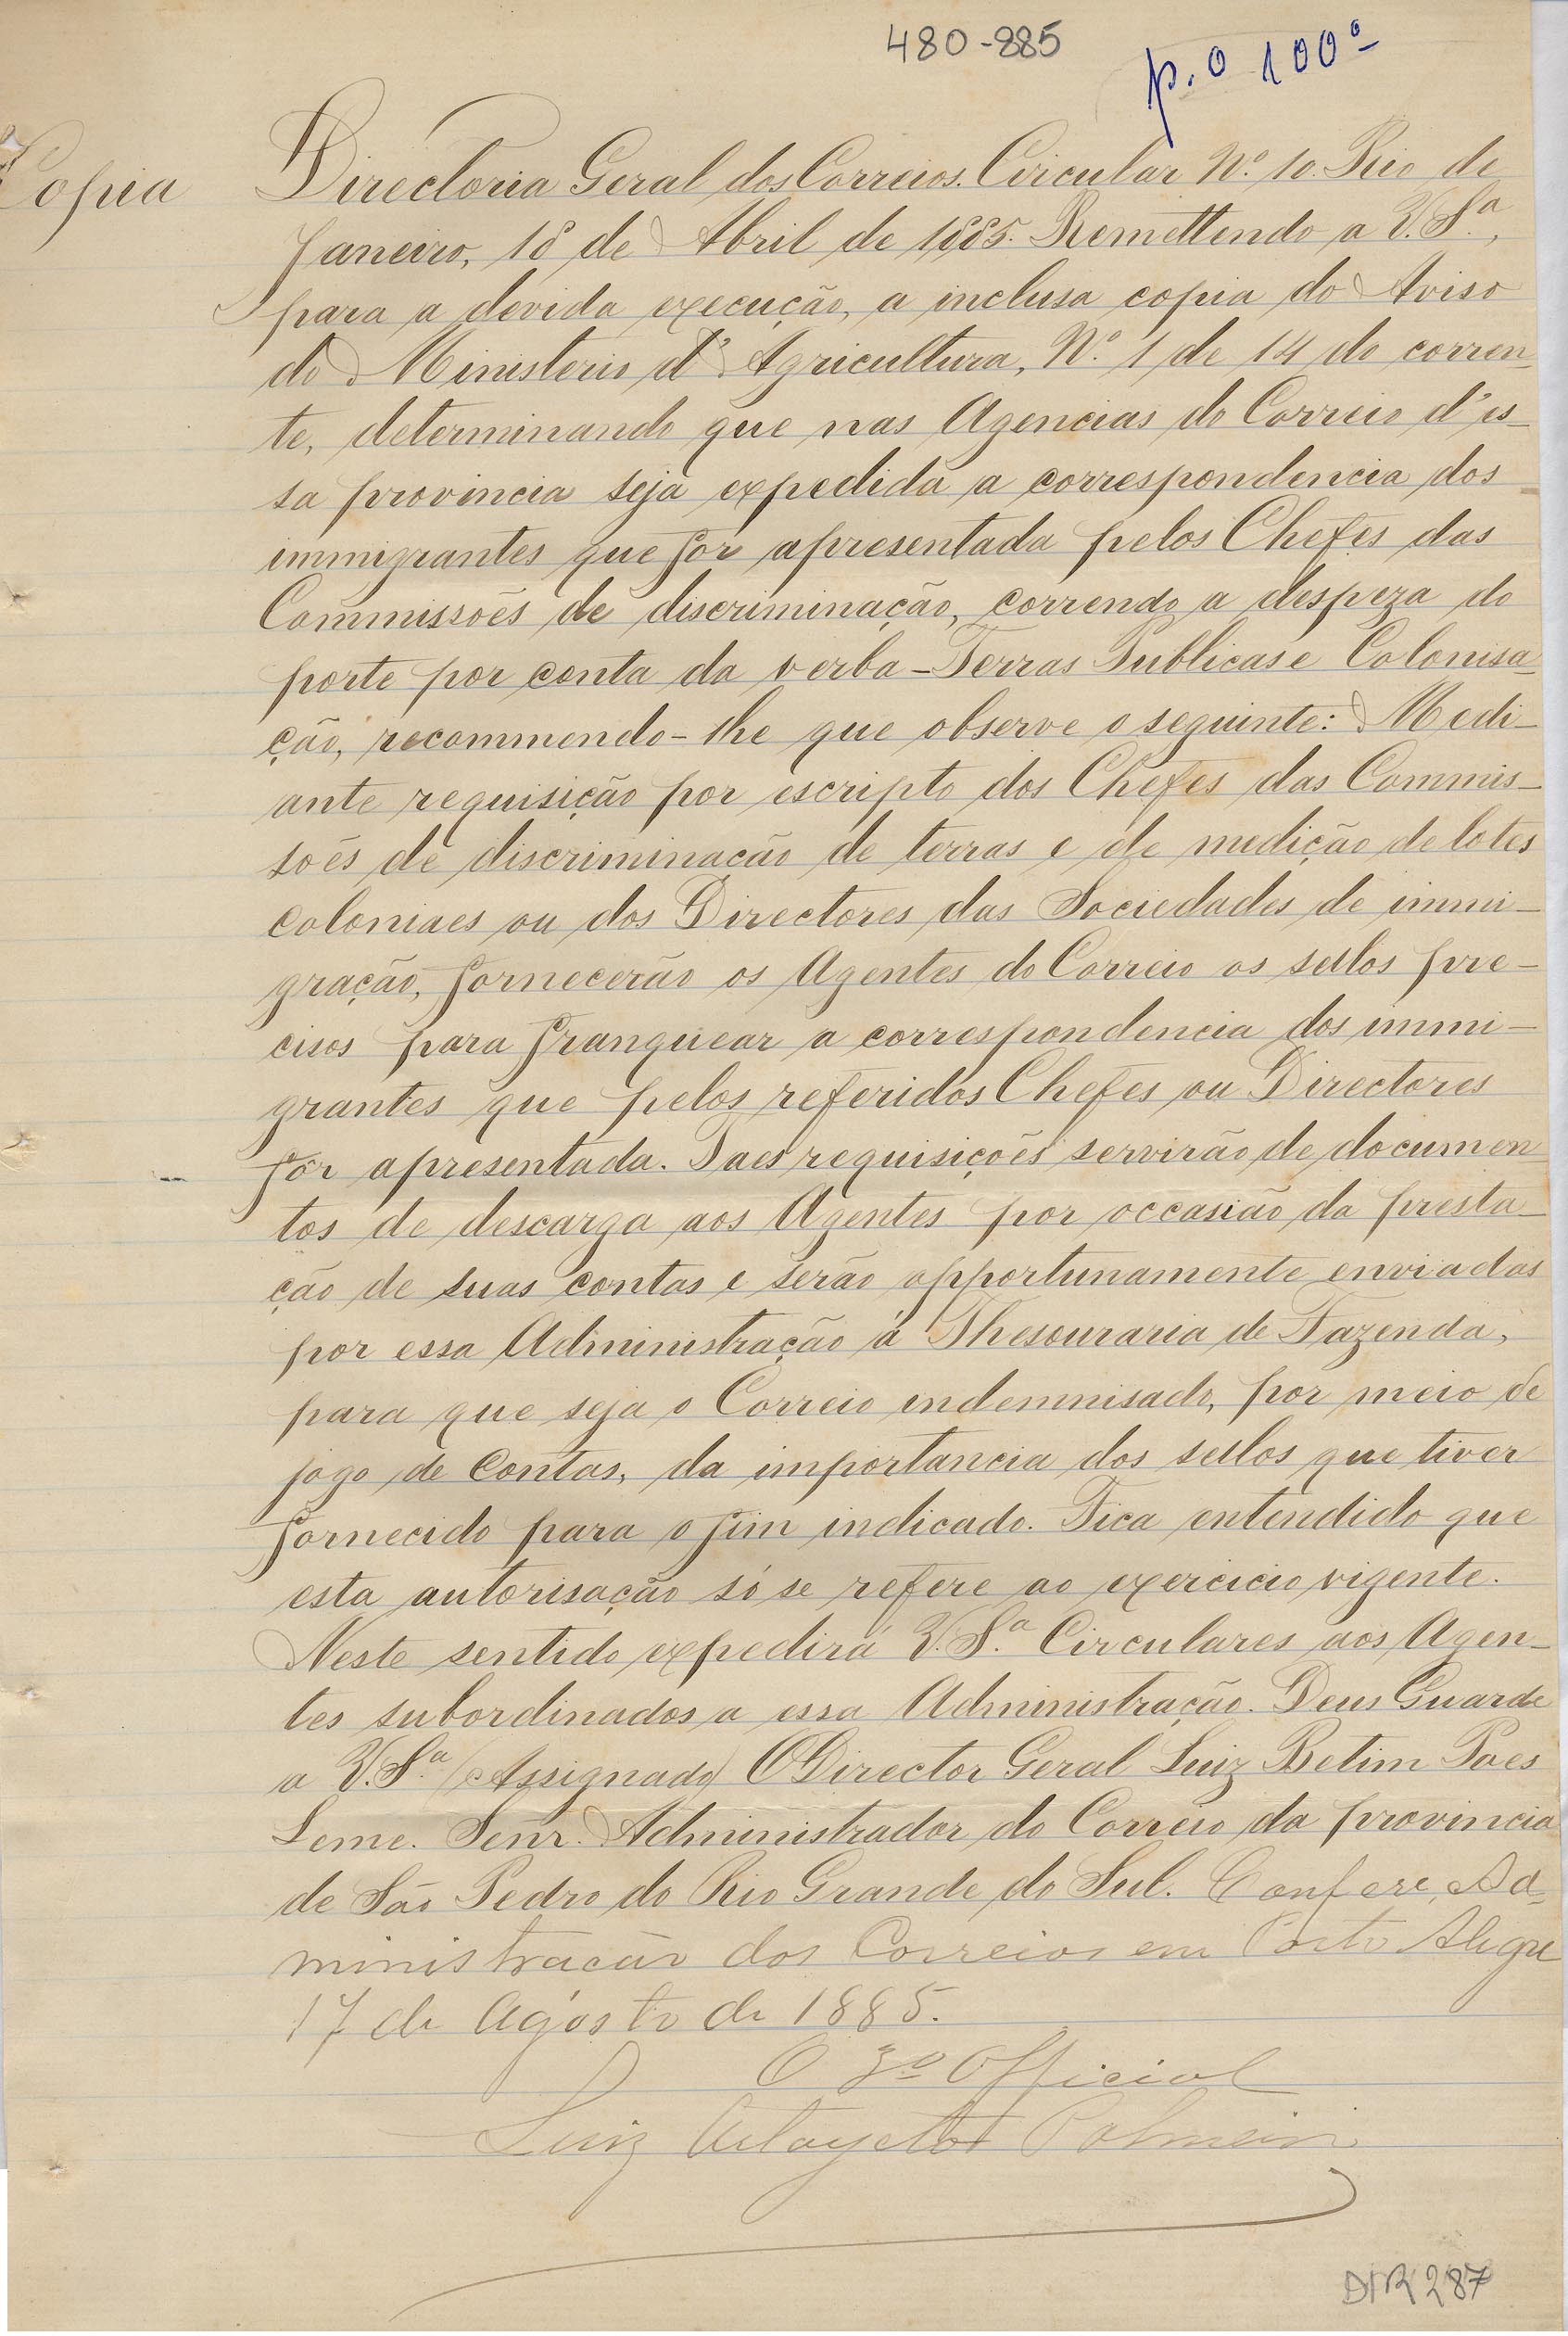 480-885
p. o 100º
Copia
Directoria Geral dos Correios. Circular Nº 10. Rio de
Janeiro, 18 de Abril de 1885. Remettendo a V. S.ª,
para a devida execução, a inclusa copia do Aviso
do Ministerio d'Agricultura, Nº 1 de 14 do corren-
te, determinando que nas Agencias do Correio d'es-
sa provincia seja expedida a correspondencia dos
immigrantes que for apresentada pelos Chefes das
Commissoẽs de discriminação, correndo a despeza do
porte por conta da verba - Terras Publicas e Colonisa-
ção, recommendo-lhe que observe o seguinte: Medi-
ante requisição por escripto dos Chefes das Commis-
soẽs de discriminacão de terras e de medição de lotes
coloniaes ou dos Directores das Sociedades de immi-
gração, fornecerão os Agentes do Correio os sellos pre-
cisos para franquear a correspondencia dos immi-
grantes que pelos referidos Chefes ou Directores
fôr apresentada. Taes requisiçoẽs servirão de documen-
tos de descarga aos Agentes por occasião da presta-
ção de suas contas e serão opportunamente enviadas
por essa Administração á Thesouraria de Fazenda,
para que seja o Correio indemnisado, por meio de
jogo de contas, da importancia dos sellos que tiver
fornecido para o fim indicado. Fica entendido que
esta autorisação só se refere ao exercicio vigente.
Neste sentido expedirá V. S.ª Circulares aos Agen-
tes subordinados a essa Administração. Deus Guarde
a V. S.ª (Assignado) O Director Geral Luiz Betim Paes
Leme. Senr. Administrador do Correio da provincia
de São Pedro do Rio Grande do Sul. Confere, Ad-
ministracão dos Correios em Porto Alegre
17 de Agosto de 1885.
O 3º Official
Luiz Palmeiro
DIR 287